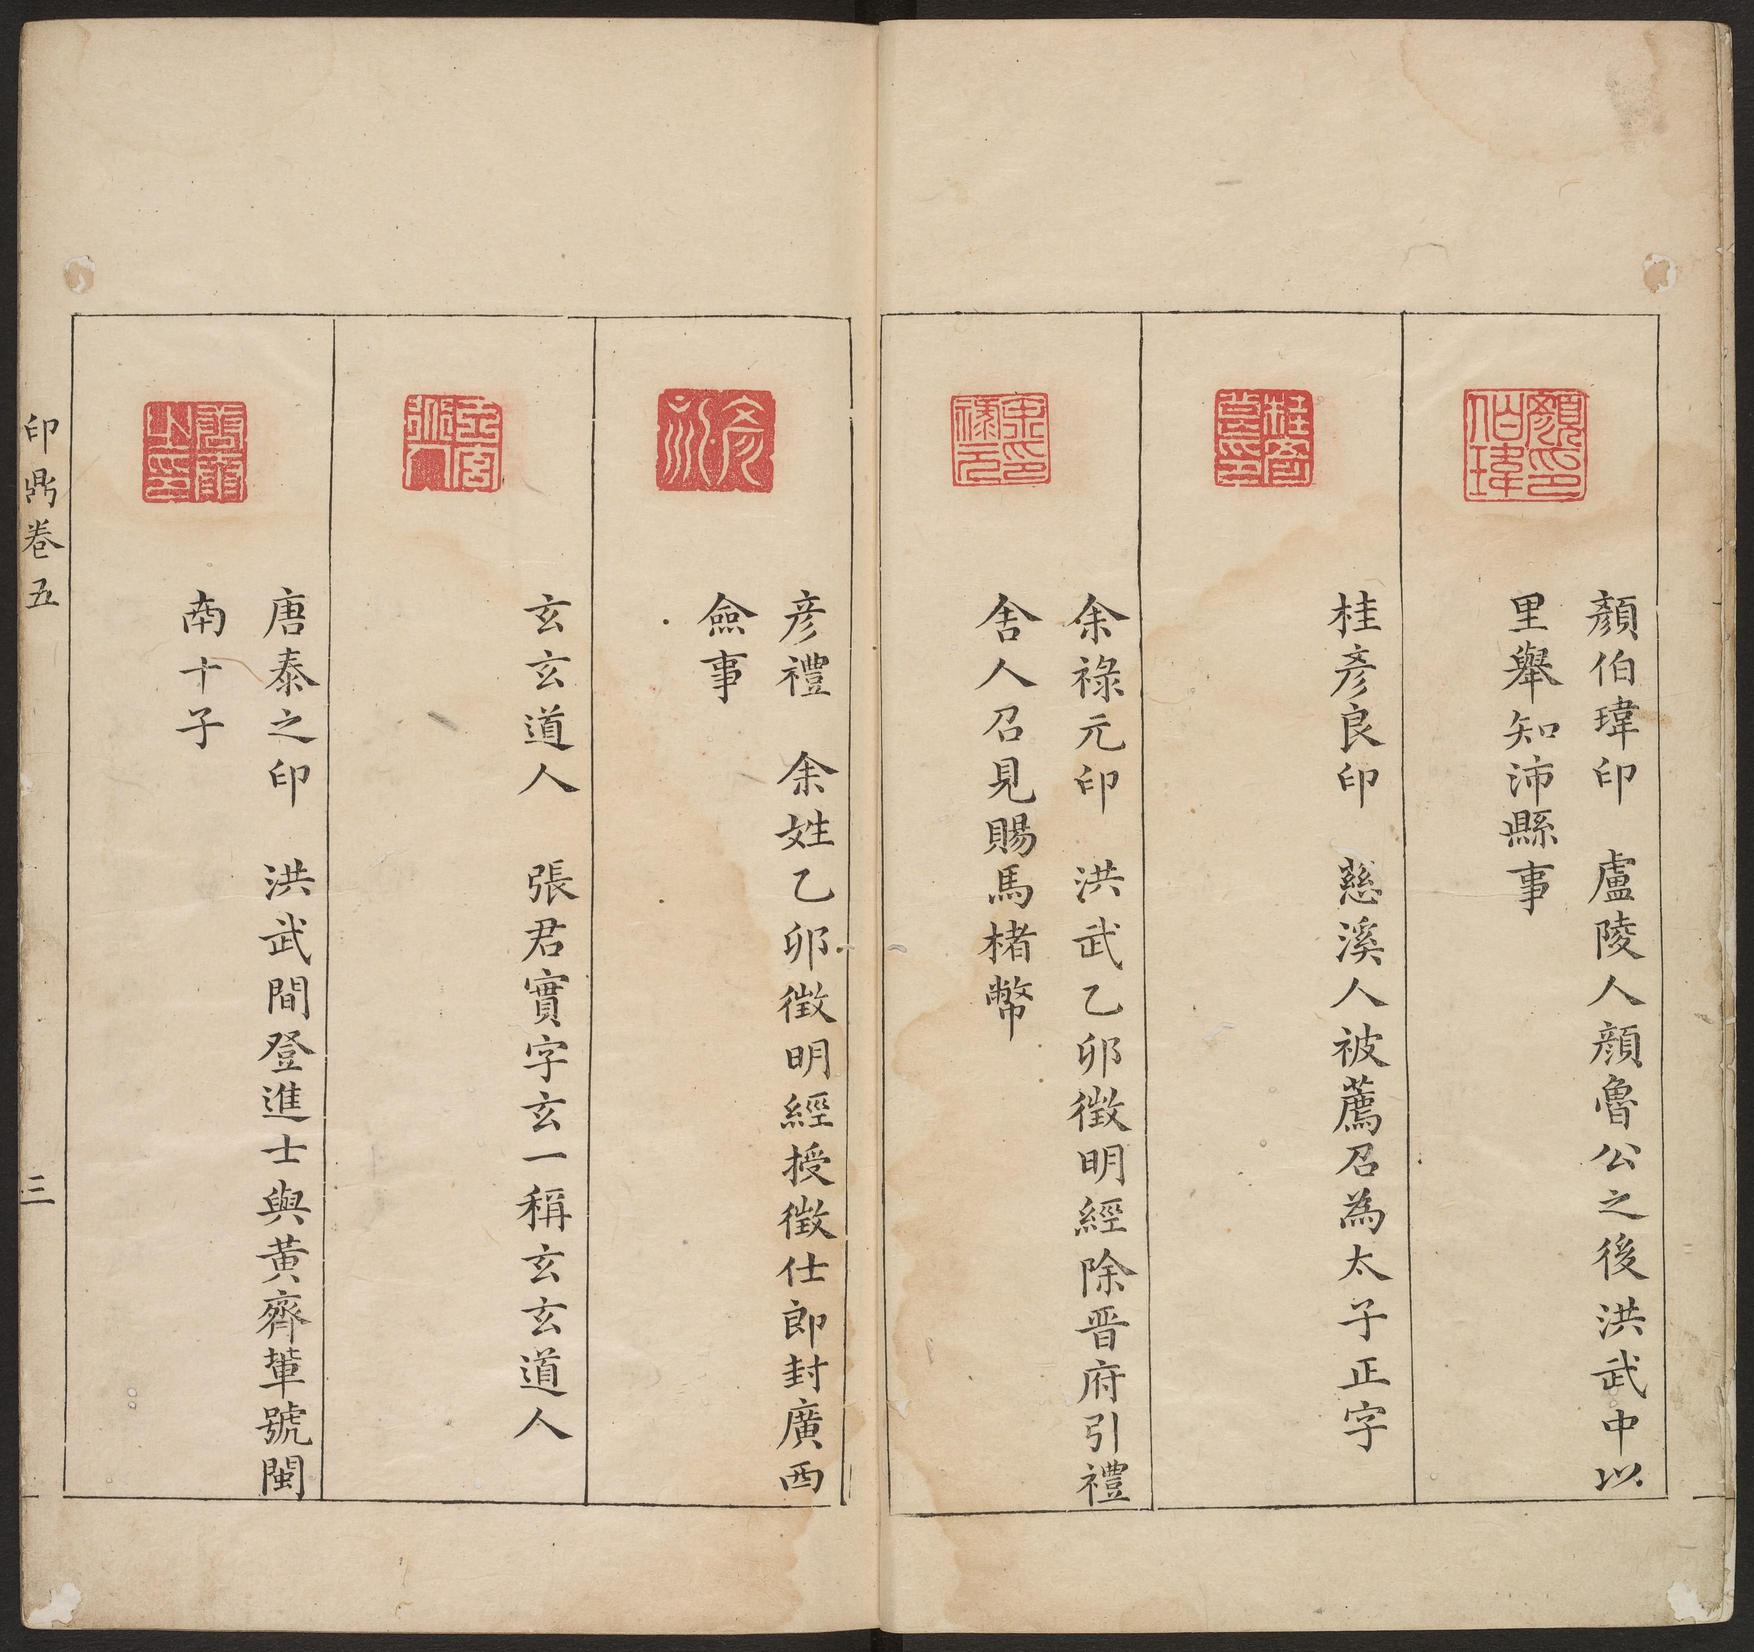 顏伯瑋印　盧陵人顏魯公之後洪武中以
里舉知沛縣事
桂彥良印　慈溪人被薦召為太子正字
余祿元印　洪武乙卯徵明經除晉府引禮
舍人召見賜馬楮幣
彥禮　余姓乙卯徵明經授徵仕郎封廣西
僉事
玄玄道人　張君實字玄一稱玄玄道人
唐泰之印　洪武間登進士與黃齊輩號閩
南十子
印鼎卷五
三